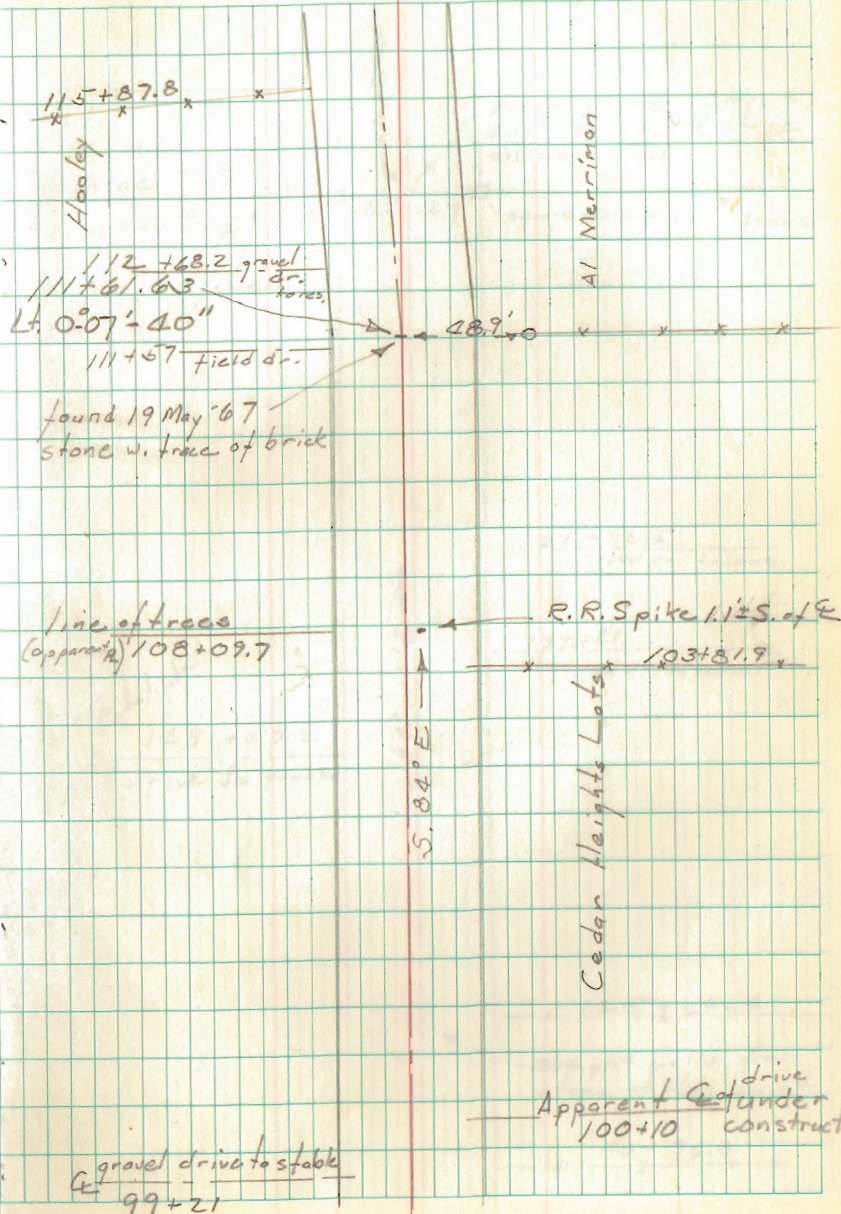 115+87.8
Hooley
Al Merrimon
112 +68.2 gravel dr. to res.
111+61.63
Lt. 0°-07'-40"
111+57 field dr.
48.9'
found 19 May '67
stone w. trace of brick
line of trees
(apparent ℞) 108+09.7
R.R. Spike 1.1'± S. of ℄
103+81.9
S. 84° E
Cedar Heights Lots
Apparent ℄ of drive
under
100+10 construct
℄ gravel drive to stable
99+21